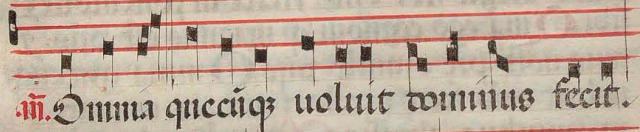 añ. Omnia quecūqꝫ uoluit dominus fecit.